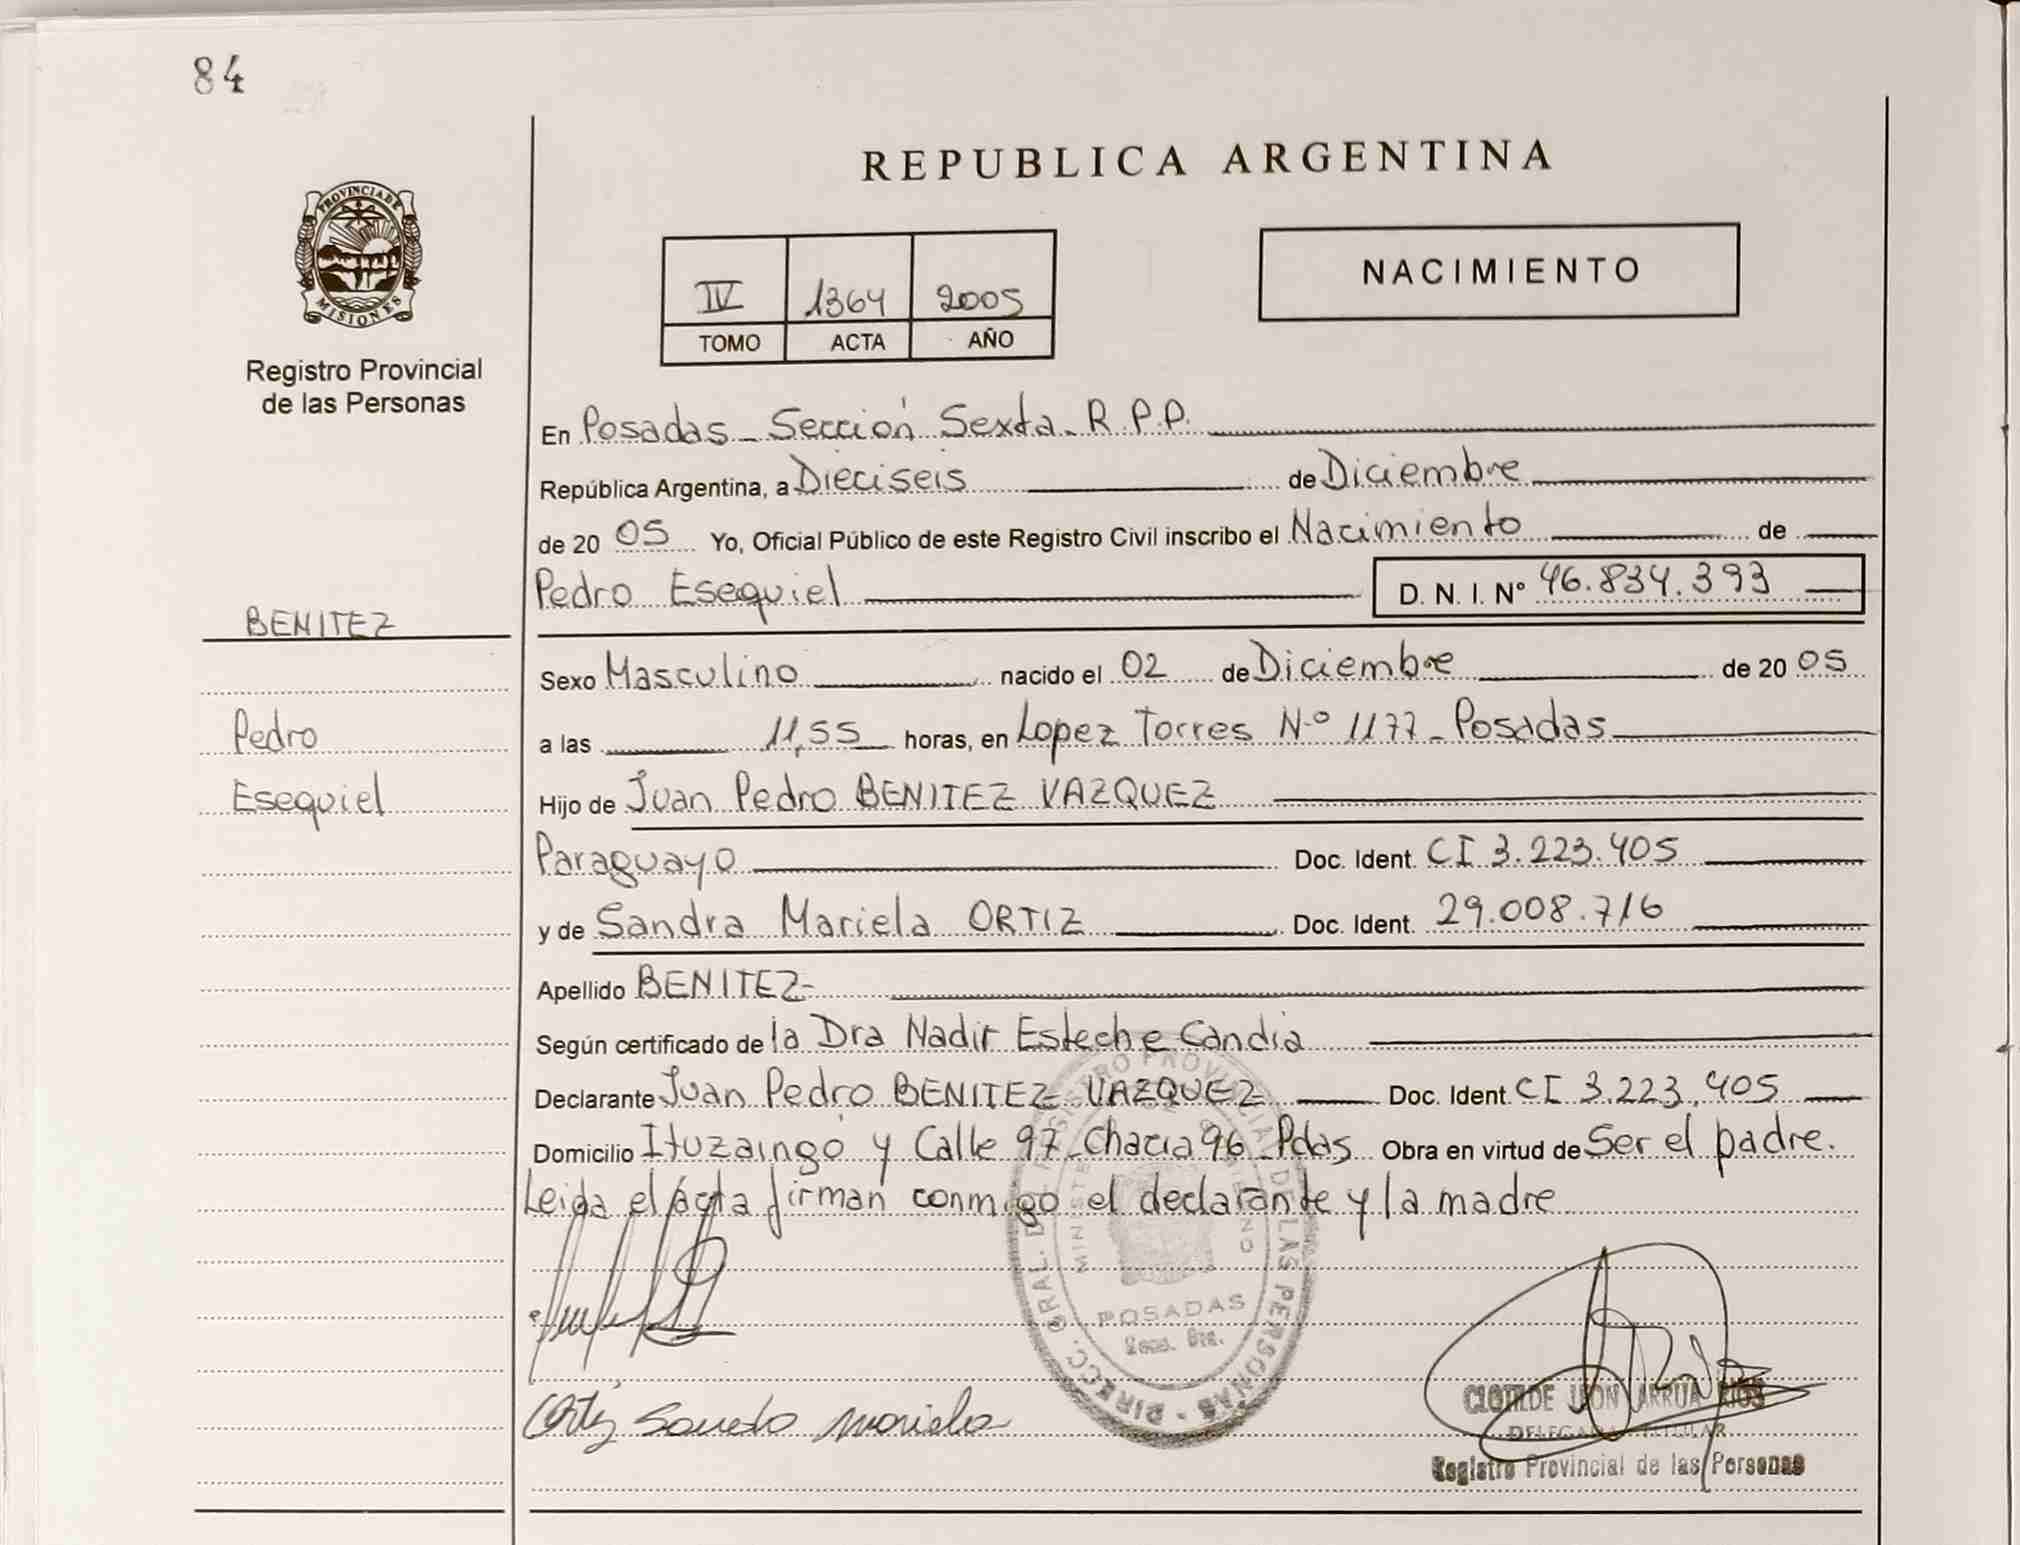 84
PROVINCIA DE
MISIONES
Registro Provincial
de las Personas
REPUBLICA ARGENTINA
IV 1364 2005
TOMO ACTA AÑO
NACIMIENTO
En Posadas - Sección Sexta - R.P.P.
República Argentina, a Dieciseis de Diciembre
de 2005 Yo, Oficial Público de este Registro Civil inscribo el Nacimiento de
Pedro Esequiel D. N. I. Nº 46.834.393
BENITEZ
Pedro
Esequiel
Sexo Masculino nacido el 02 de Diciembre de 2005
a las 11,55 horas, en Lopez Torres Nº 1177 - Posadas
Hijo de Juan Pedro BENITEZ VAZQUEZ
Paraguayo Doc. Ident. CI 3.223.405
y de Sandra Mariela ORTIZ Doc. Ident. 29.008.716
Apellido BENITEZ-
Según certificado de la Dra Nadir Esteche Candia
Declarante Juan Pedro BENITEZ VAZQUEZ Doc. Ident. CI 3.223.405
Domicilio Ituzaingó y Calle 97 - Chacra 96 - Pdas Obra en virtud de Ser el padre.
Leida el ácta firman conmigo el declarante y la madre
DIRECC. GRAL. DEL REGISTRO PROVINCIAL DE LAS PERSONAS
POSADAS
Secc. 6ta.
Ortiz Sandra Mariela
CLOTILDE ARRUA RIOS
DELEGADA TITULAR
Registro Provincial de las Personas